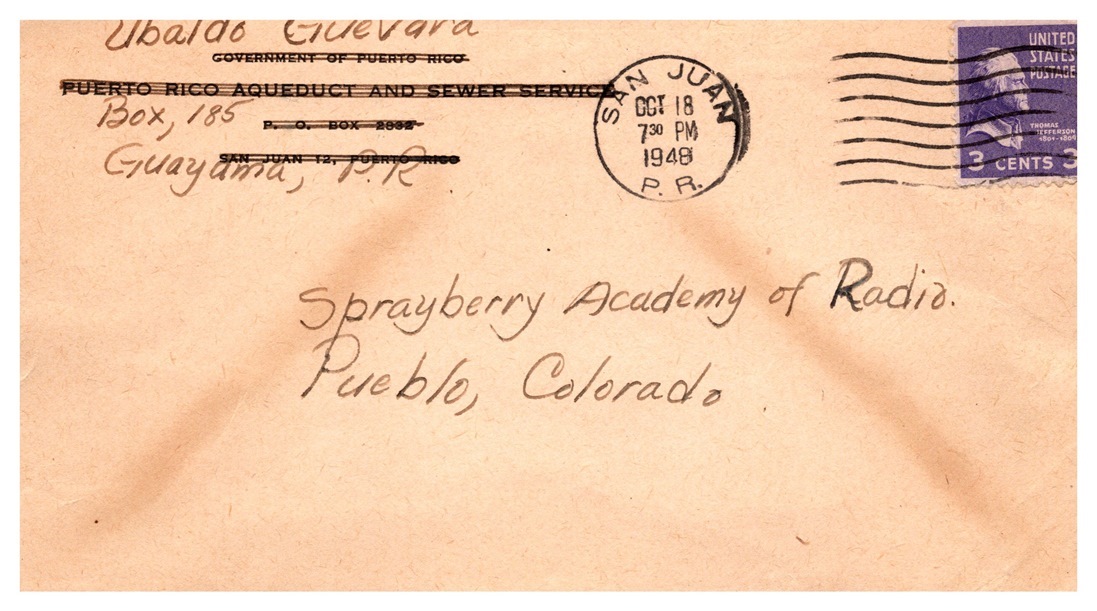 Ubaldo Guevara
GOVERNMENT OF PUERTO RICO
PUERTO RICO AQUEDUCT AND SEWER SERVICE
Box, 185
P. O. BOX 2832
SAN JUAN 12, PUERTO RICO
Guayama, P.R
SAN JUAN
OCT 18
7 30 PM
1948
P. R.
UNITED
STATES
POSTAGE
THOMAS
JEFFERSON
1801-1809
3 CENTS 3
Sprayberry Academy of Radio.
Pueblo, Colorado